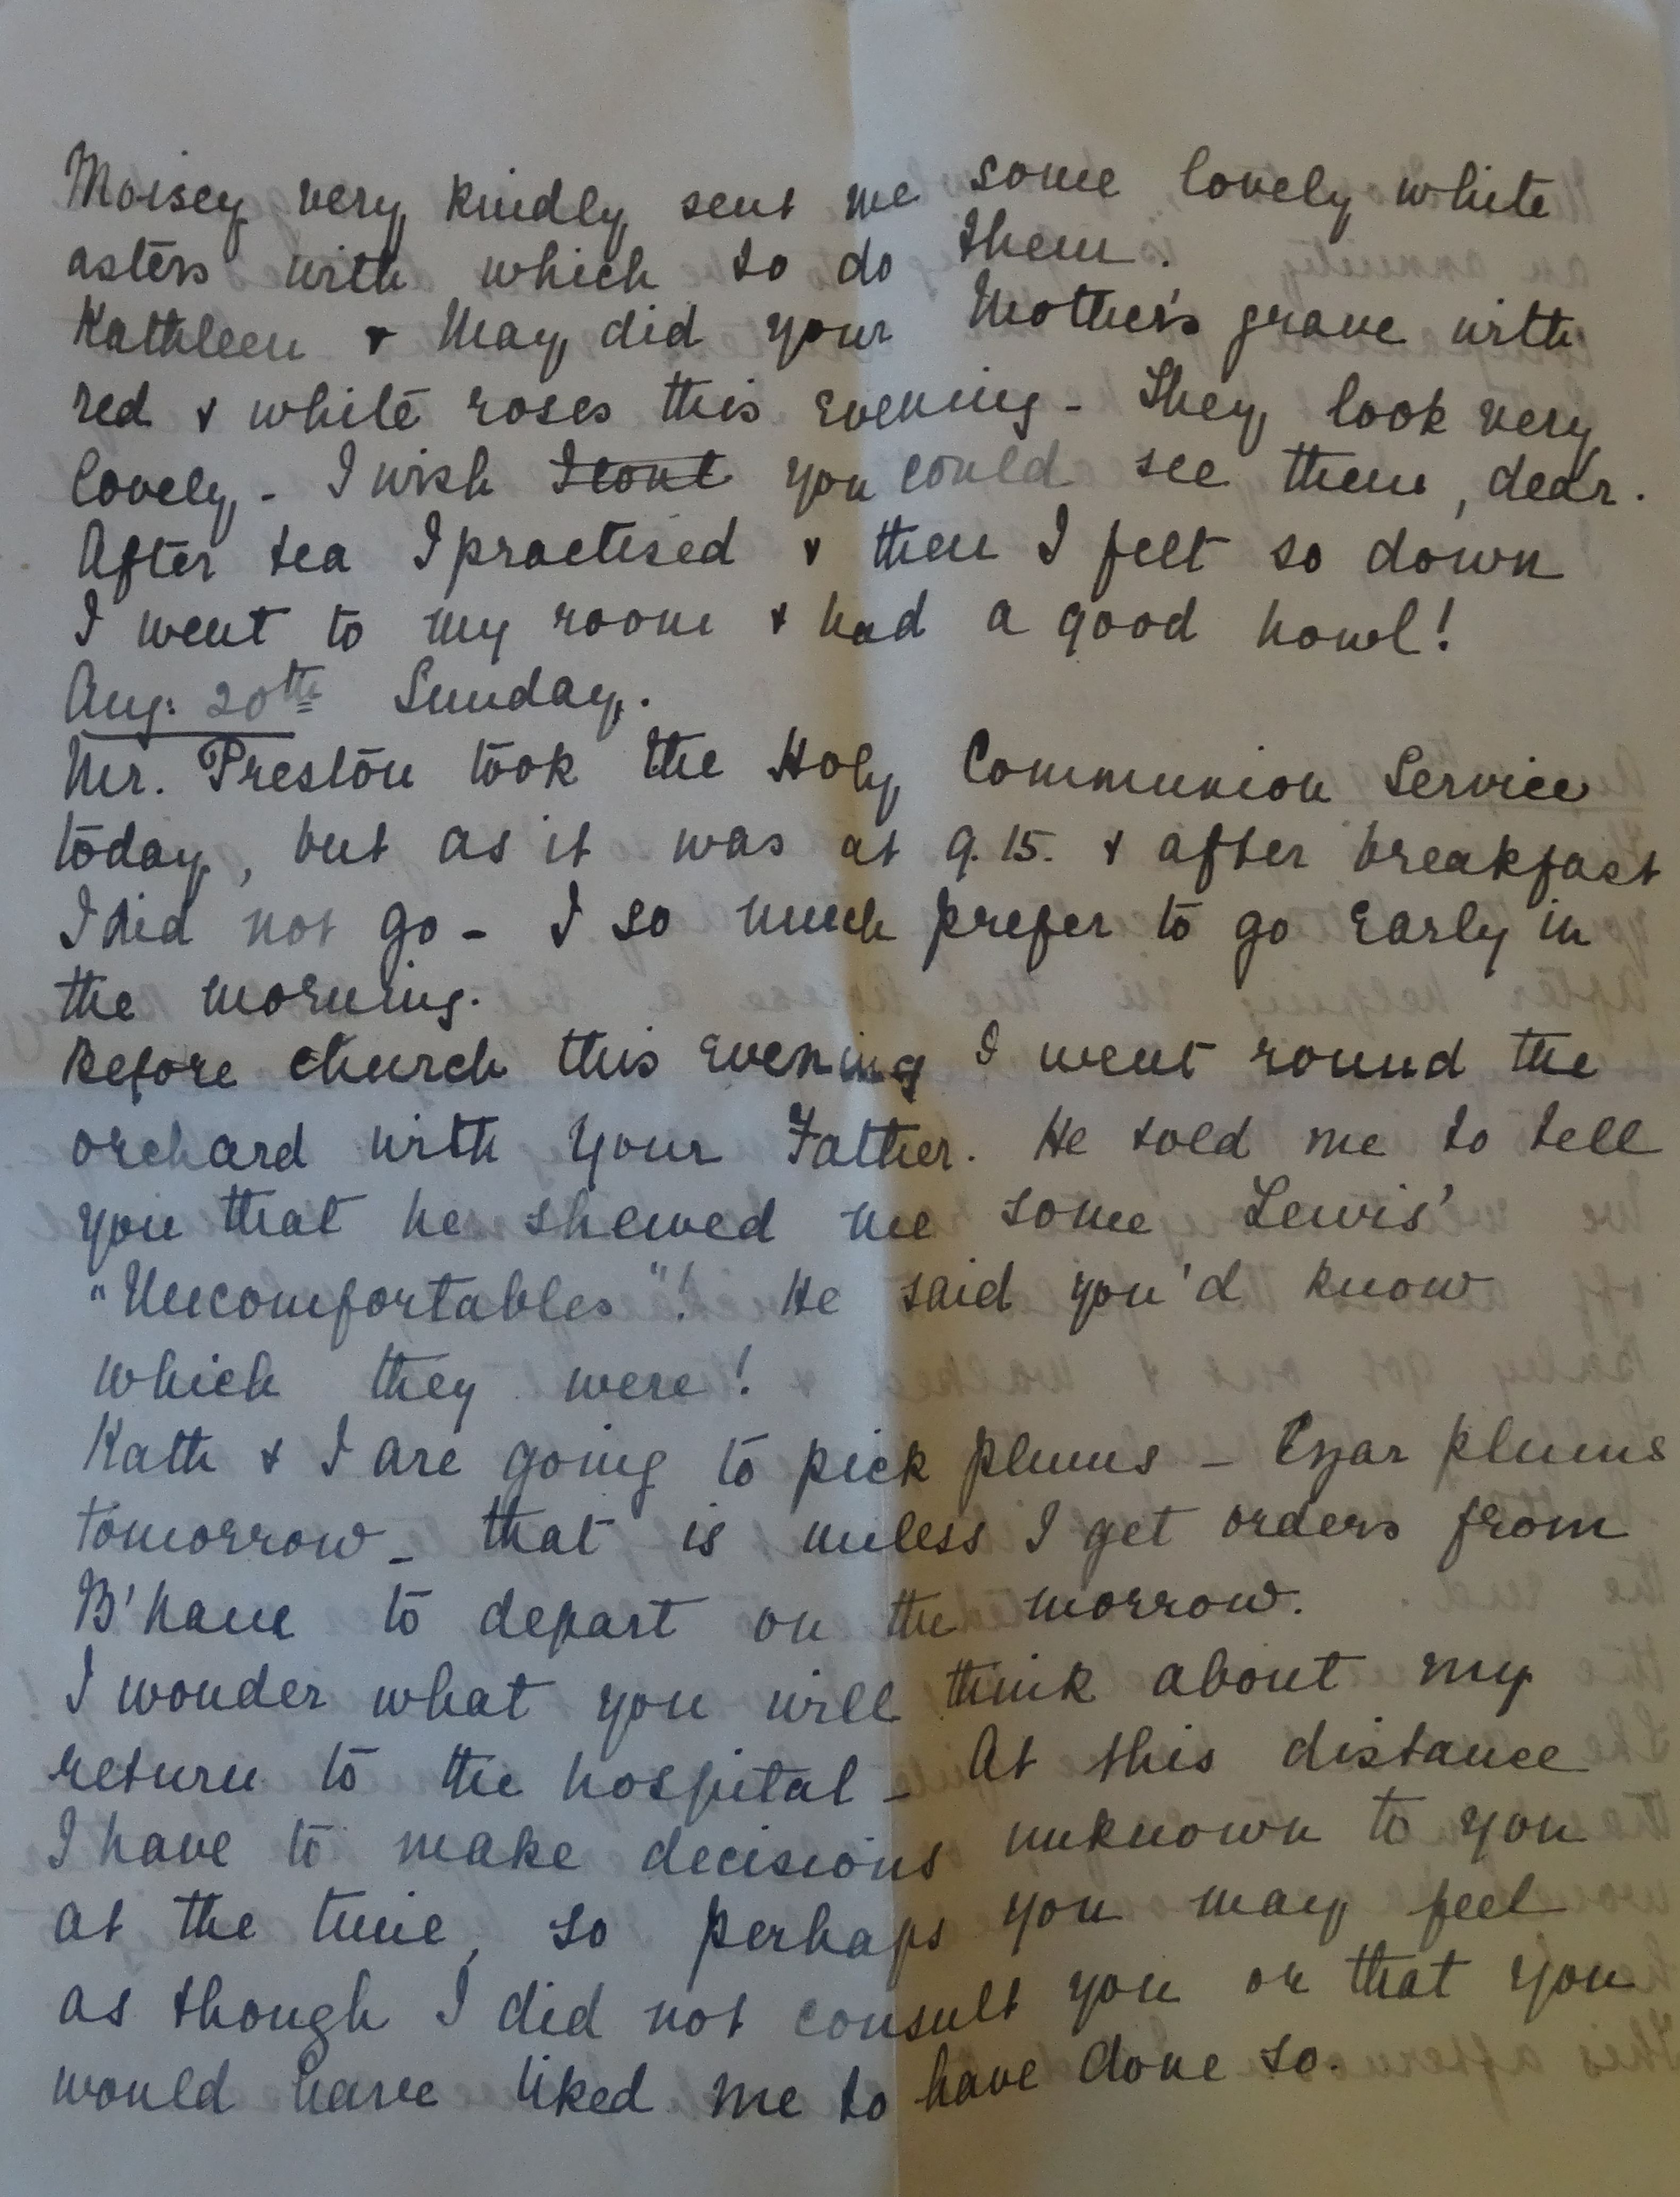 Moisey very kindly sent me some lovely white
asters with which to do them.
Kathleen & May did your Mother's grave with
red & white roses this evening - They look very
lovely - I wish I coul you could see them, dear.
After tea I practised & then I felt so down
I went to my room & had a good howl!
Aug: 20th Sunday.
Mr. Preston took the Holy Communion Service
today, but as it was at 9.15. & after breakfast
I did not go - I so much prefer to go early in
the morning.
Before church this evening I went round the
orchard with your Father. He told me to tell
you that he shewed me some Lewis'
"Uncomfortables"! He said you'd know
which they were!
Kath & I are going to pick plums - Czar plums
tomorrow - that is unless I get orders from
B'ham to depart on the morrow.
I wonder what you will think about my
return to the hospital - At this distance
I have to make decisions unknown to you
at the time, so perhaps you may feel
as though I did not consult you or that you
would have liked me to have done so.